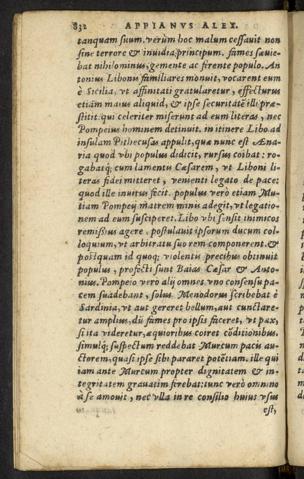 832 APPIANVS ALEX.
tanquam suum. verùm hoc malum cessauit non
sine terrore & inuidia principum. fames sæuie-
bat nihilominus, gemente ac ferente populo. An
tonius Libonis familiares monuit, vocarent eum
è Sicilia, vt affinitati gratularetur, effecturus
etiam maius aliquid, & ipse securitatē illi præ-
stitit. qui celeriter miserunt ad eum literas, nec
Pompeius hominem detinuit. in itinere Libo ad
insulam Pithecusas appulit, quæ nunc est Æna-
ria quod vbi populus didicit, rursus coibat: ro-
gabatq; cum lamentis Cæsarem, vt Liboni li-
teras fidei mitteret, venienti legato de pace:
quod ille inuitus fecit. populus verò etiam Mu-
tiam Pompeij matrem minis adegit, vt legatio-
nem ad eum susciperet. Libo vbi sensit inimicos
remissius agere, postulauit ipsorum ducum col-
loquium, vt arbitratu suo rem componerent. &
postquam id quoq; violentis precibus obtinuit
populus, profecti sunt Baias Cæsar & Anto-
nius. Pompeio verò alij omnes vno consensu pa-
cem suadebant, solus Menodorus scribebat è
Sardinia, vt aut gereret bellum, aut cunctare-
tur amplius, dū fames pro ipsis faceret, vt pax,
si ita videretur, æquioribus coiret cōditionibus.
simulq; suspectum reddebat Murcum pacis au-
ctorem, quasi ipse sibi pararet potētiam. ille qui
iam ante Murcum propter dignitatem & in-
tegritatem grauatim ferebat: tunc verò omnino
à se amouit, nec vlla in re consilio huius vsus
est,